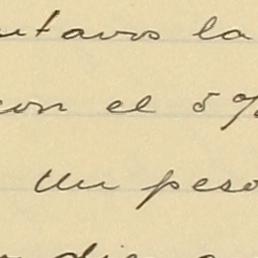 utavos la
con el 5%
Un peso